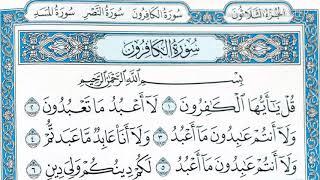 الجزء الثلاثون سورة الكافرون سورة النصر سورة المسد
سورة الكافرون
بسم الله الرحمن الرحيم
قُلْ يَٰٓأَيُّهَا ٱلْكَٰفِرُونَ ١ لَآ أَعْبُدُ مَا تَعْبُدُونَ ٢
وَلَآ أَنتُمْ عَٰبِدُونَ مَآ أَعْبُدُ ٣ وَلَآ أَنَا۠ عَابِدٌ مَّا عَبَدتُّمْ ٤
وَلَآ أَنتُمْ عَٰبِدُونَ مَآ أَعْبُدُ ٥ لَكُمْ دِينُكُمْ وَلِىَ دِينِ ٦